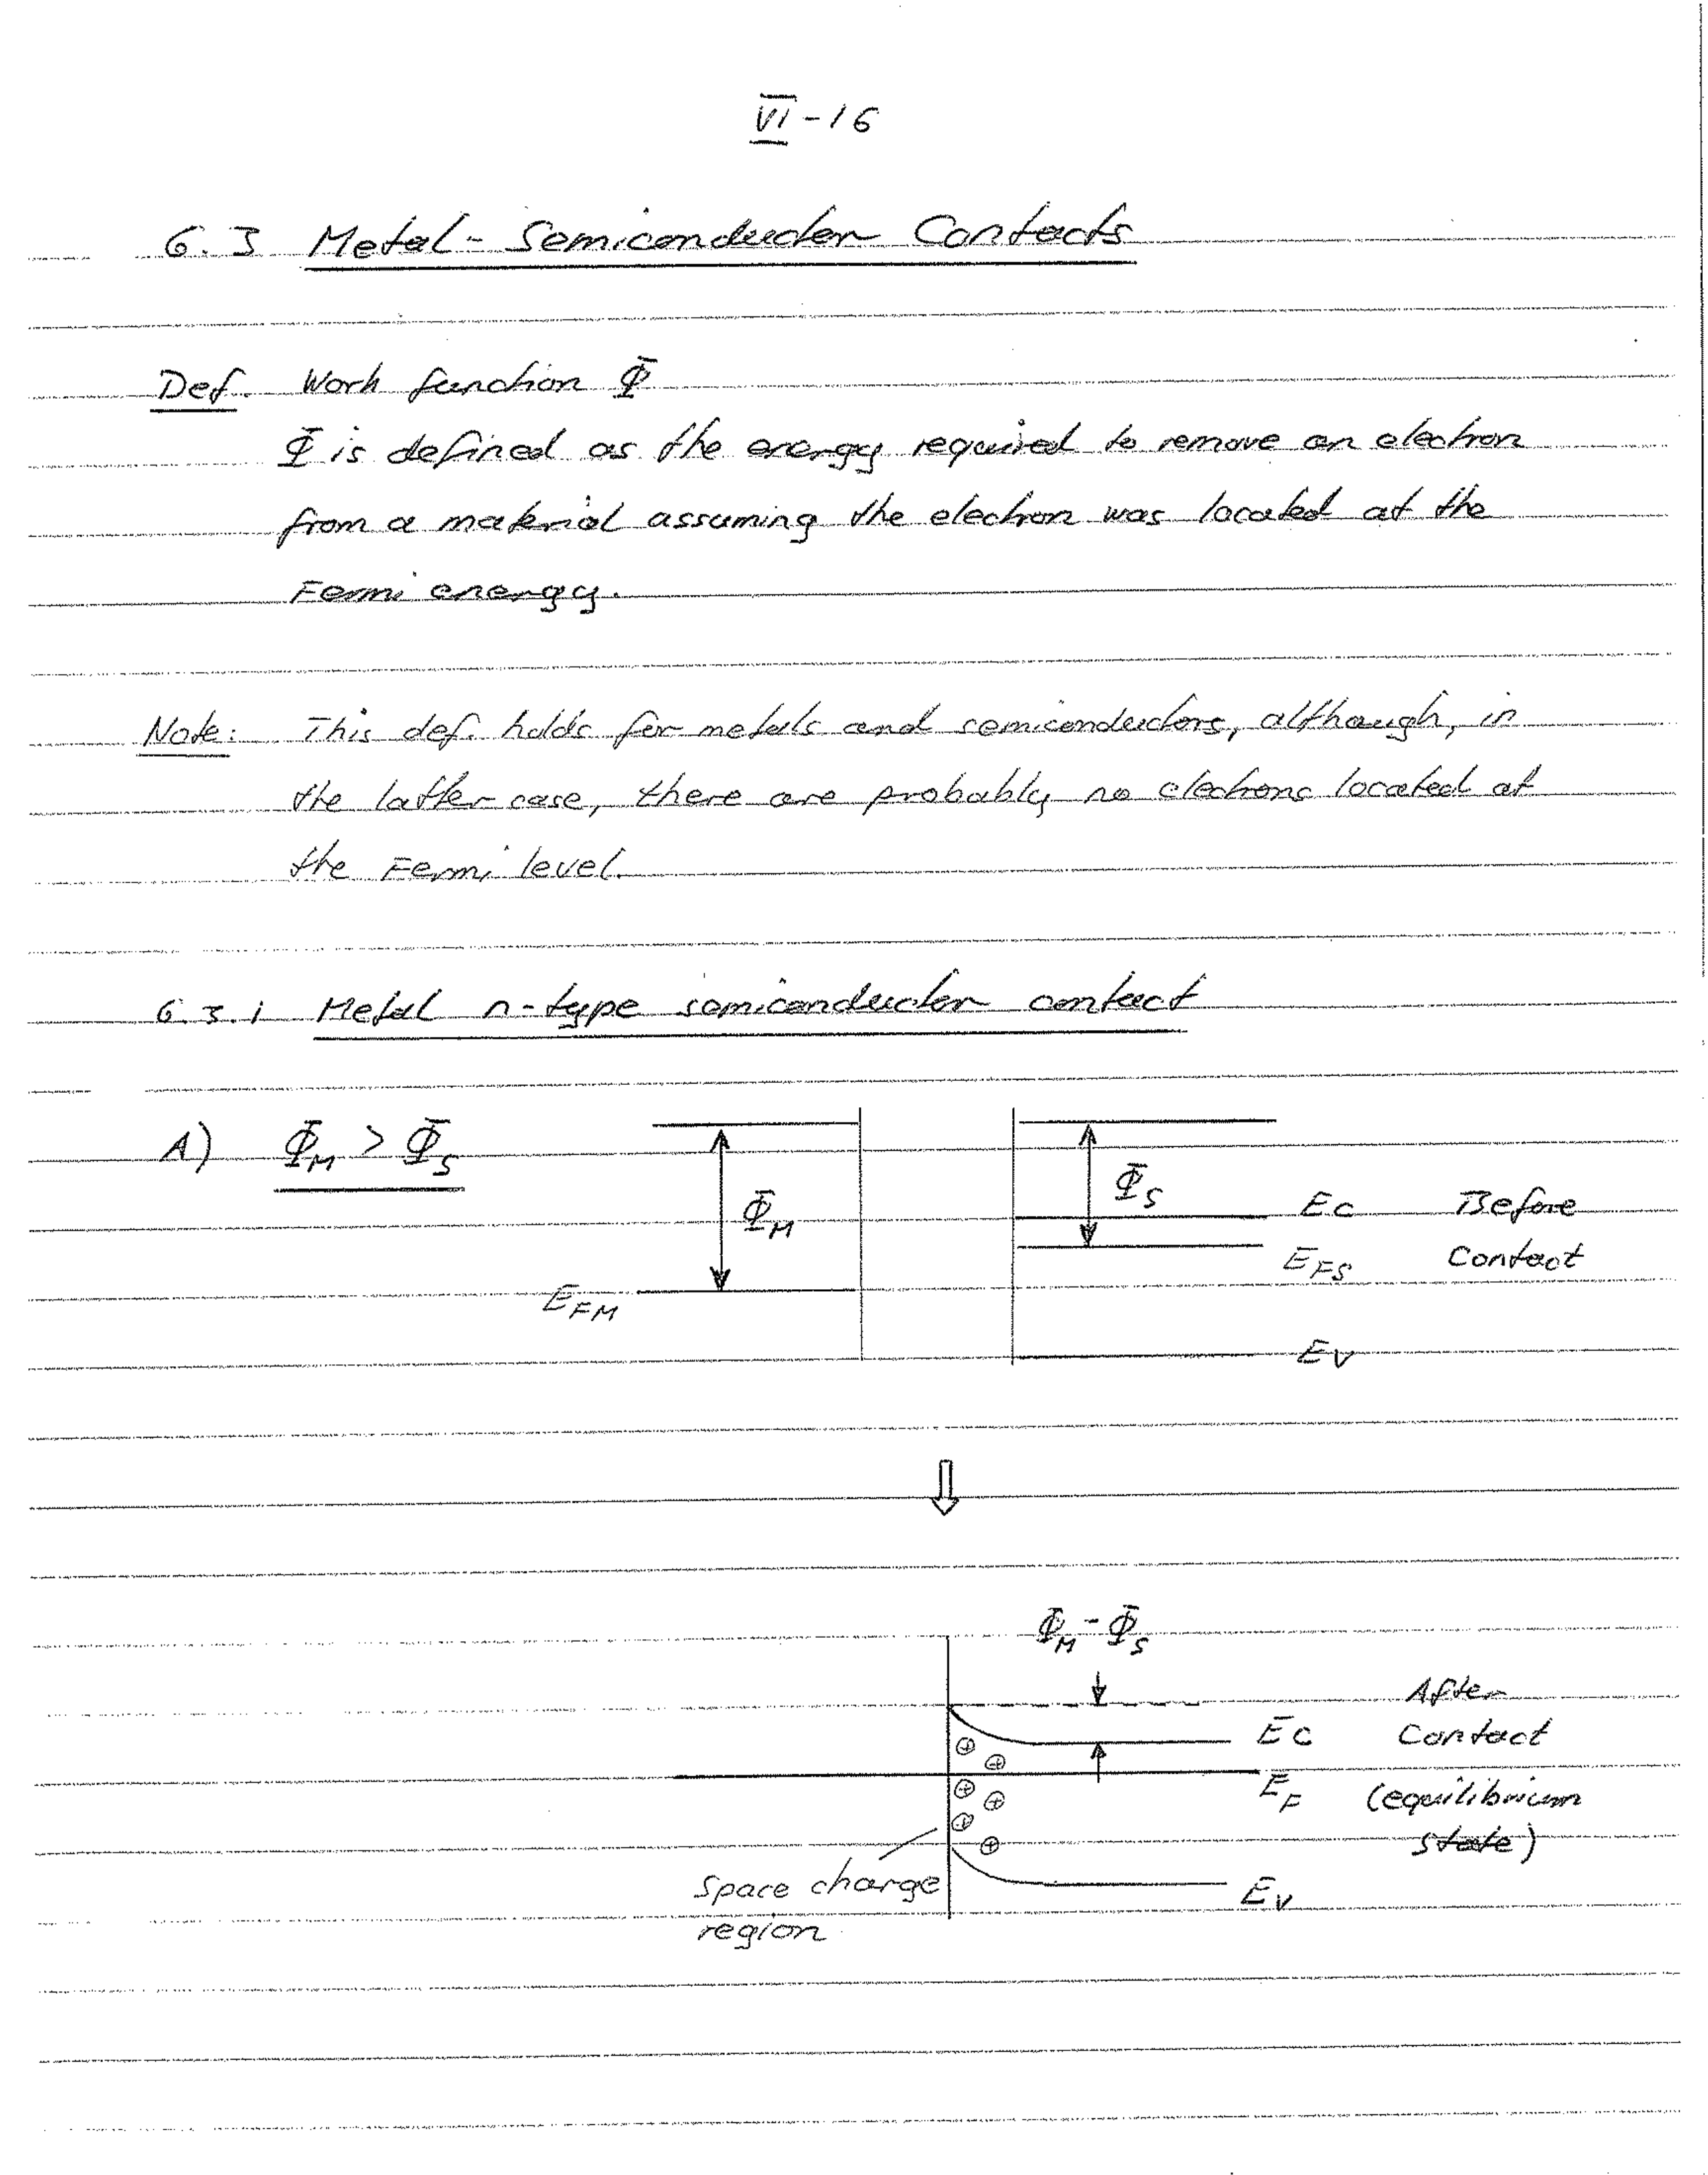 VI-16
6.3 Metal-Semiconductor Contacts
Def. Work function Φ
Φ is defined as the energy required to remove an electron
from a material assuming the electron was located at the
Fermi energy.
Note: This def. holds for metals and semiconductors, although, in
the latter case, there are probably no electrons located at
the Fermi level.
6.3.1 Metal n-type semiconductor contact
A) Φ_M > Φ_S
Φ_M
Φ_S
E_C
Before
Contact
E_FS
E_FM
E_V
⇓
Φ_M - Φ_S
After
E_C
Contact
E_F
(equilibrium
state)
Space charge
region
E_V